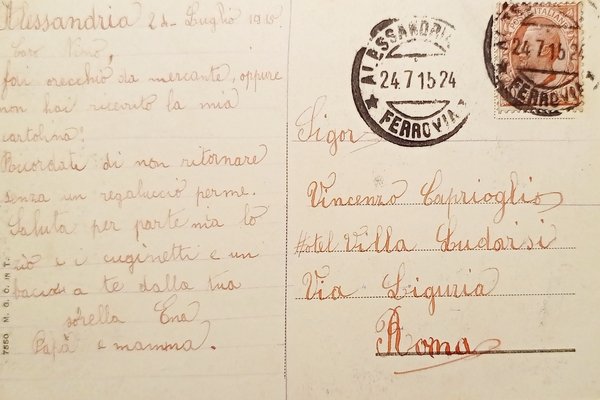 Alessandria 24 Luglio 1915
Caro Nino,
fai orecchio da mercante, oppure
non hai ricevuto la mia
cartolina?
Ricordati di non ritornare
senza un regaluccio per me.
Saluta per parte mia lo
zio e i cuginetti e un
bacione a te dalla tua
sorella Ena
Papà e mamma.
7550 M. G. C. IN T.
ALESSANDRIA
24.7.15 24
FERROVIA
24.7.15 24
FERROVIA
Sigor
Vincenzo Caprioglio
Hôtel Villa Ludovisi
Via Liguria
Roma